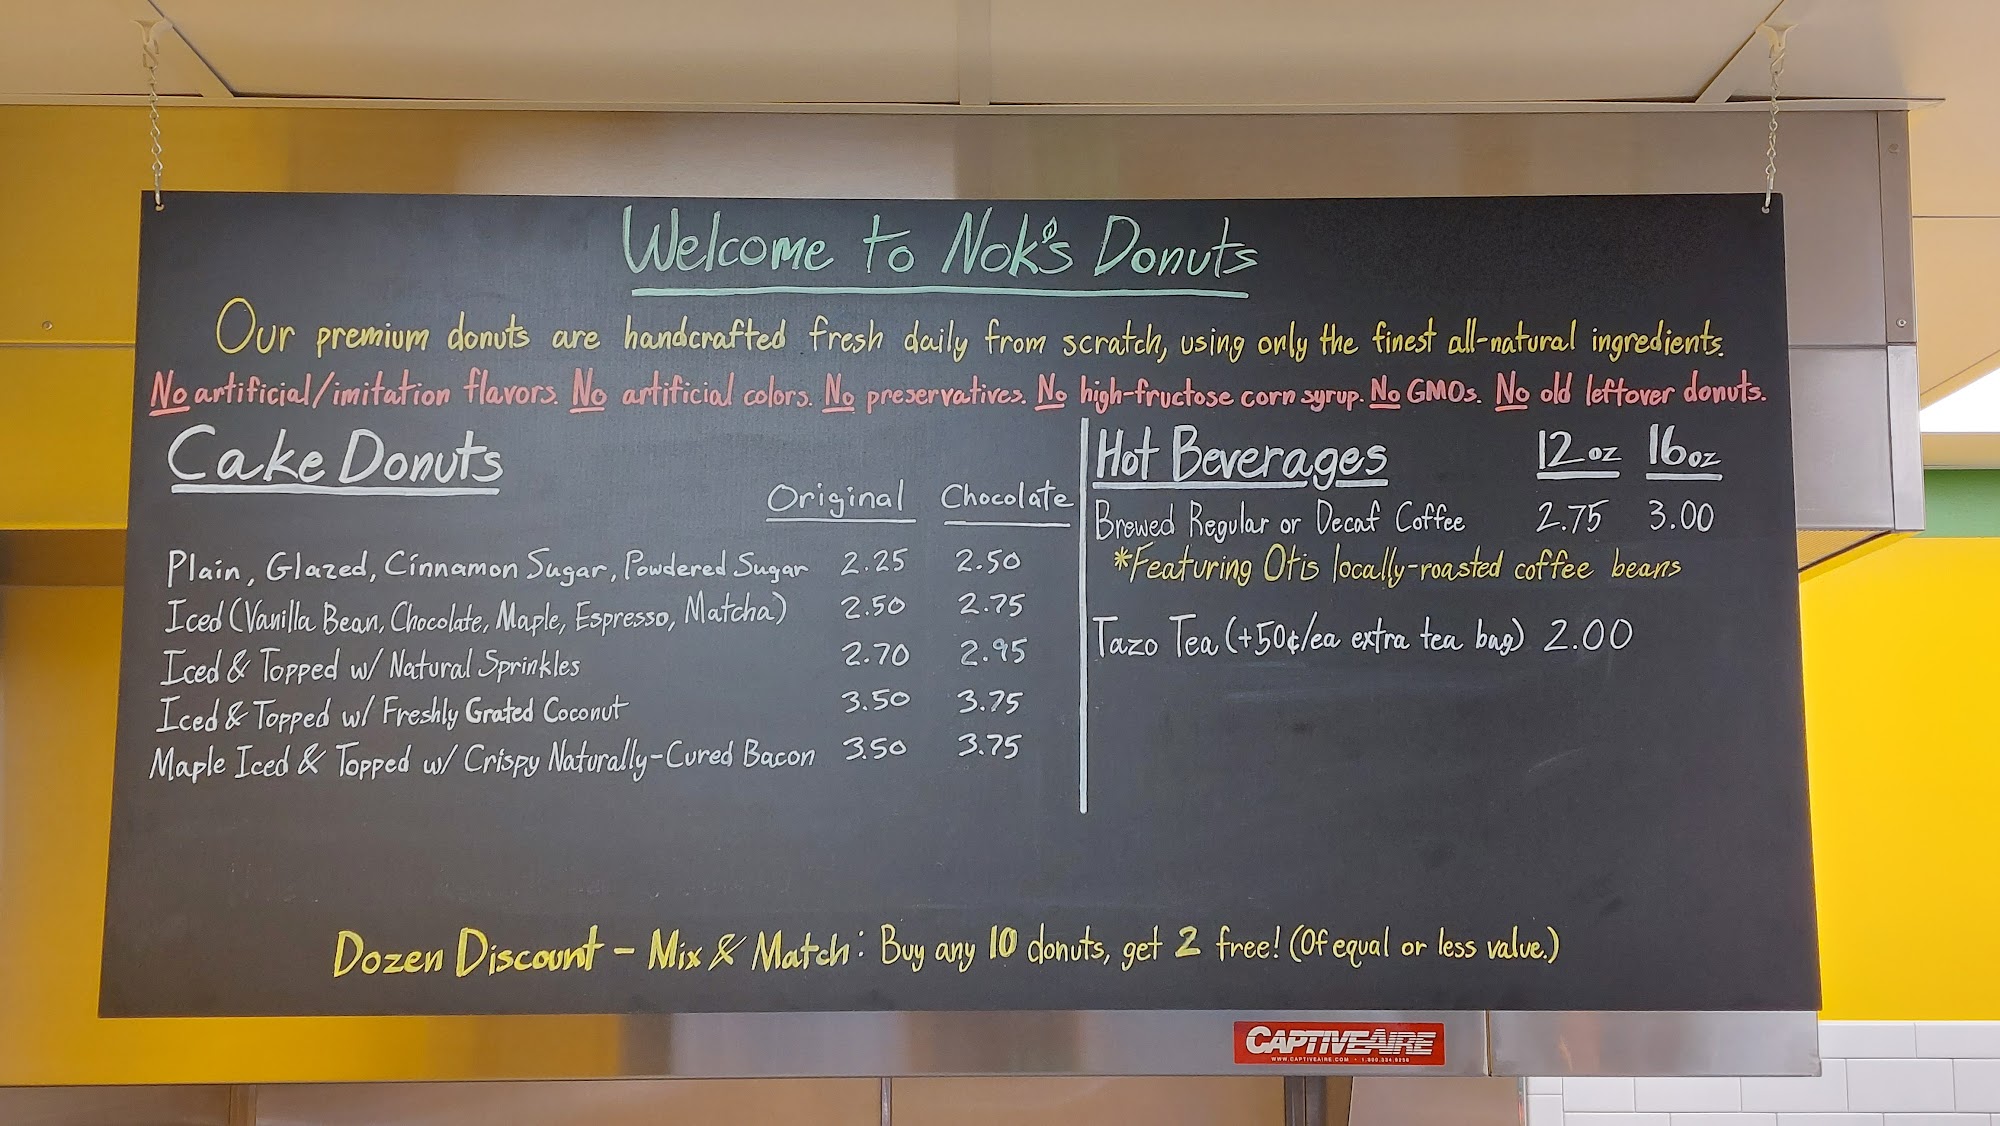 Welcome to Nok's Donuts
Our premium donuts are handcrafted fresh daily from scratch, using only the finest all-natural ingredients.
No artificial/imitation flavors. No artificial colors. No preservatives. No high-fructose corn syrup. No GMOs. No old leftover donuts.
Cake Donuts
Original Chocolate
Plain, Glazed, Cinnamon Sugar, Powdered Sugar 2.25 2.50
Iced (Vanilla Bean, Chocolate, Maple, Espresso, Matcha) 2.50 2.75
Iced & Topped w/ Natural Sprinkles 2.70 2.95
Iced & Topped w/ Freshly Grated Coconut 3.50 3.75
Maple Iced & Topped w/ Crispy Naturally-Cured Bacon 3.50 3.75
Hot Beverages 12oz 16oz
Brewed Regular or Decaf Coffee 2.75 3.00
*Featuring Otis locally-roasted coffee beans
Tazo Tea (+50¢/ea extra tea bag) 2.00
Dozen Discount - Mix & Match: Buy any 10 donuts, get 2 free! (Of equal or less value.)
CAPTIVEAIRE
WWW.CAPTIVEAIRE.COM • 1.800.334.9256